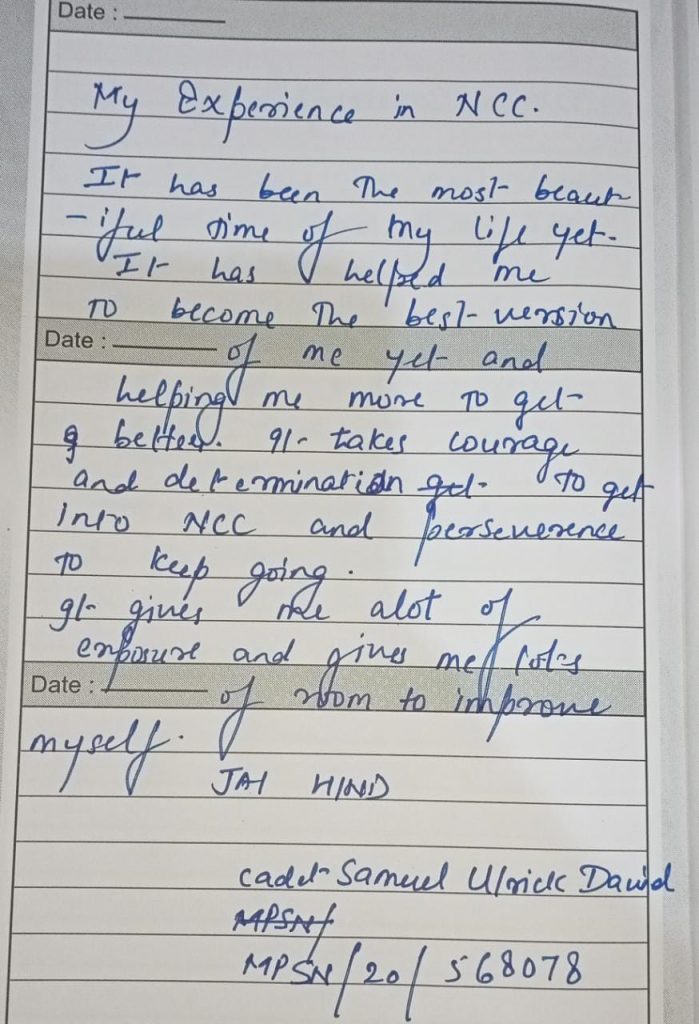 Date :
My Experience in NCC.
It has been The most beaut
-iful time of my life yet.
It has helped me
To become The best version
Date : of me yet and
helping me more To get
better. It takes courage
and determination get To get
into NCC and perseverence
To keep going.
It gives me alot of
exposure and gives me lots
Date : of room to improve
myself.
JAI HIND
cadet Samuel Ulrick David
MPSN/
MPSN/20/568078